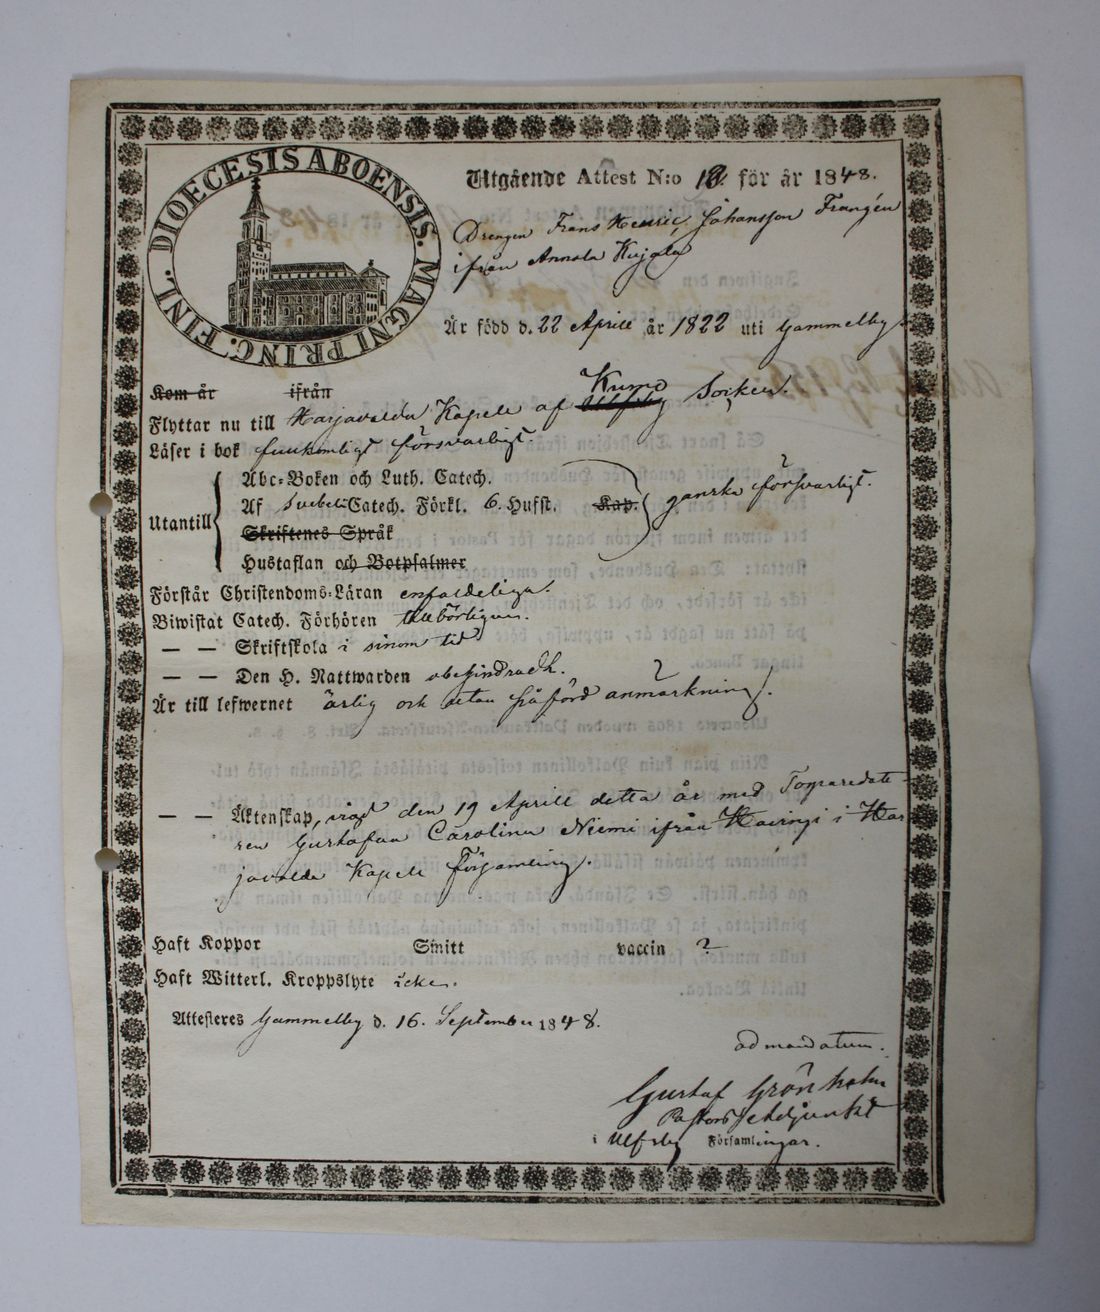 DIOECESIS ABOENSIS. MAGNI PRINC. FINL.
Utgående Attest N:o 12. för år 1848.
Drengen Frans Henric Johansson Frangén
ifrån Annola Kujala
Är född d. 22 Aprill år 1822 uti Gammelby
Kom år ifrån
Kumo
Flyttar nu till Harjavalda Kapell af Socken.
Läser i bok funkomligt försvarligt.
Abc-Boken och Luth. Catech.
Af Svebeli Catech. Förkl. 6. Hufst. Kap. ganska försvarligt.
Utantill
Skriftenes Språk
Hustaflan och Botpsalmer
Förstår Christendoms-Läran enfaldeliga.
Biwistat Catech. Förhören tillbörligen.
— — Skriftskola i sinom tid
— — Den H. Nattwarden obehindradt.
Är till lefwernet ärlig och utan påförd anmärkning.
— — Äktenskap, vigd den 19 Aprill detta år med Torparedotte-
ren Gustafva Carolina Niemi ifrån Havingi i Har
javalda Kapell Församling.
Haft Koppor Smitt vaccin ?
Haft Witterl. Kroppslyte icke.
Attesteres Gammelby d. 16. September 1848.
ad mandatum.
Gustaf Grönholm
Pastors Adjunkt
i Ulfsby Församlingar.